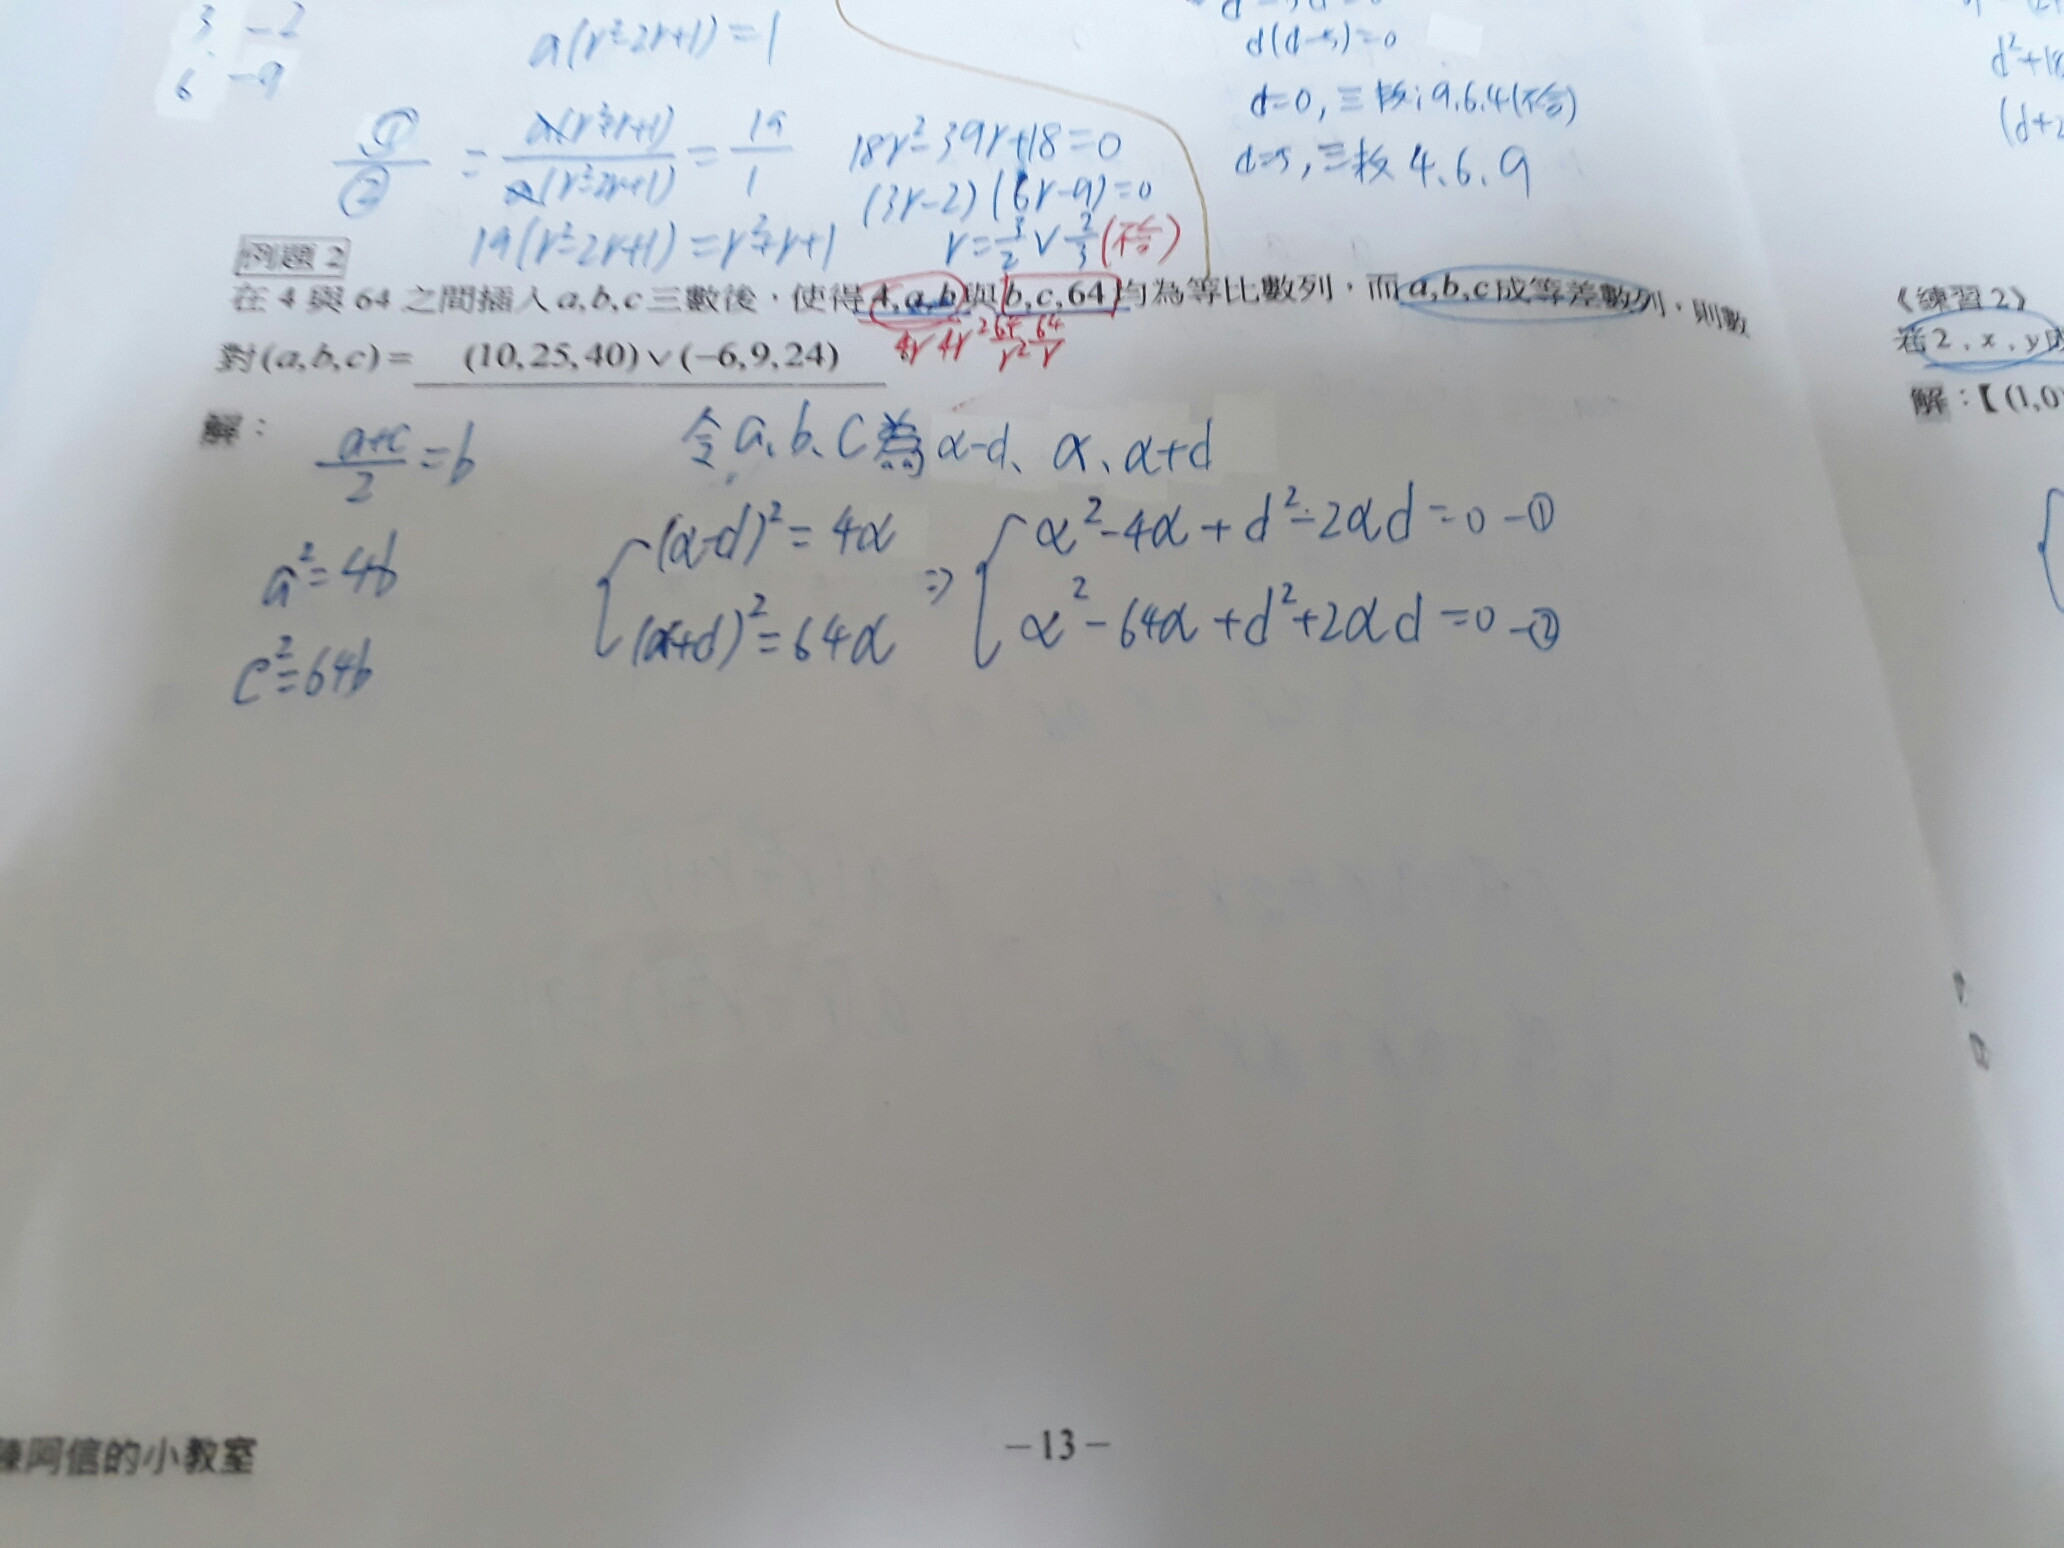 3 -2
6 -9
a(r²-2r+1)=1
①/② = a(r²+r+1)/a(r²-2r+1) = 19/1
19(r²-2r+1)=r²+r+1
18r²-39r+18=0
(3r-2)(6r-9)=0
r=3/2 ∨ 2/3 (不合)
d(d-5)=0
d=0,三數:9.6.4(不合)
d=5,三數 4、6、9
d²+18
(d+2
例題 2
在 4 與 64 之間插入 a,b,c 三數後,使得 4,a,b 與 b,c,64 均為等比數列,而 a,b,c 成等差數列,則數
4r 4r² 64/r² 64/r
對 (a,b,c) = (10,25,40)∨(-6,9,24)
解:
(a+c)/2=b
a²=4b
c²=64b
令 a、b、c 為 α-d、α、α+d
{ (α-d)²=4α
(α+d)²=64α
⇒ { α²-4α+d²-2αd=0 -①
α²-64α+d²+2αd=0 -②
《練習 2》
若 2、x、y
解:【(1,0
陳阿信的小教室
-13-